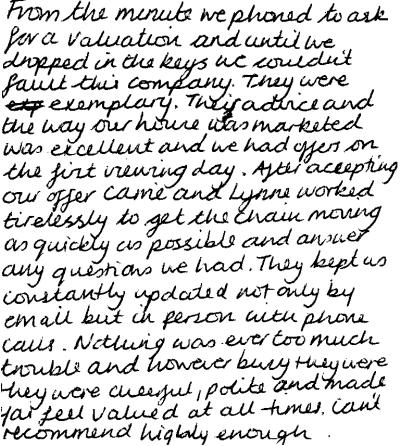 From the minute we phoned to ask
for a valuation and until we
dropped in the keys we couldn't
fault this company. They were
exemplary. Their advice and
the way our house was marketed
was excellent and we had offers on
the first viewing day. After accepting
our offer Carrie and Lynne worked
tirelessly to get the chain moving
as quickly as possible and answer
any questions we had. They kept us
constantly updated not only by
email but in person with phone
calls. Nothing was ever too much
trouble and however busy they were
they were cheerful, polite and made
feel valued at all times. Can't
recommend highly enough.